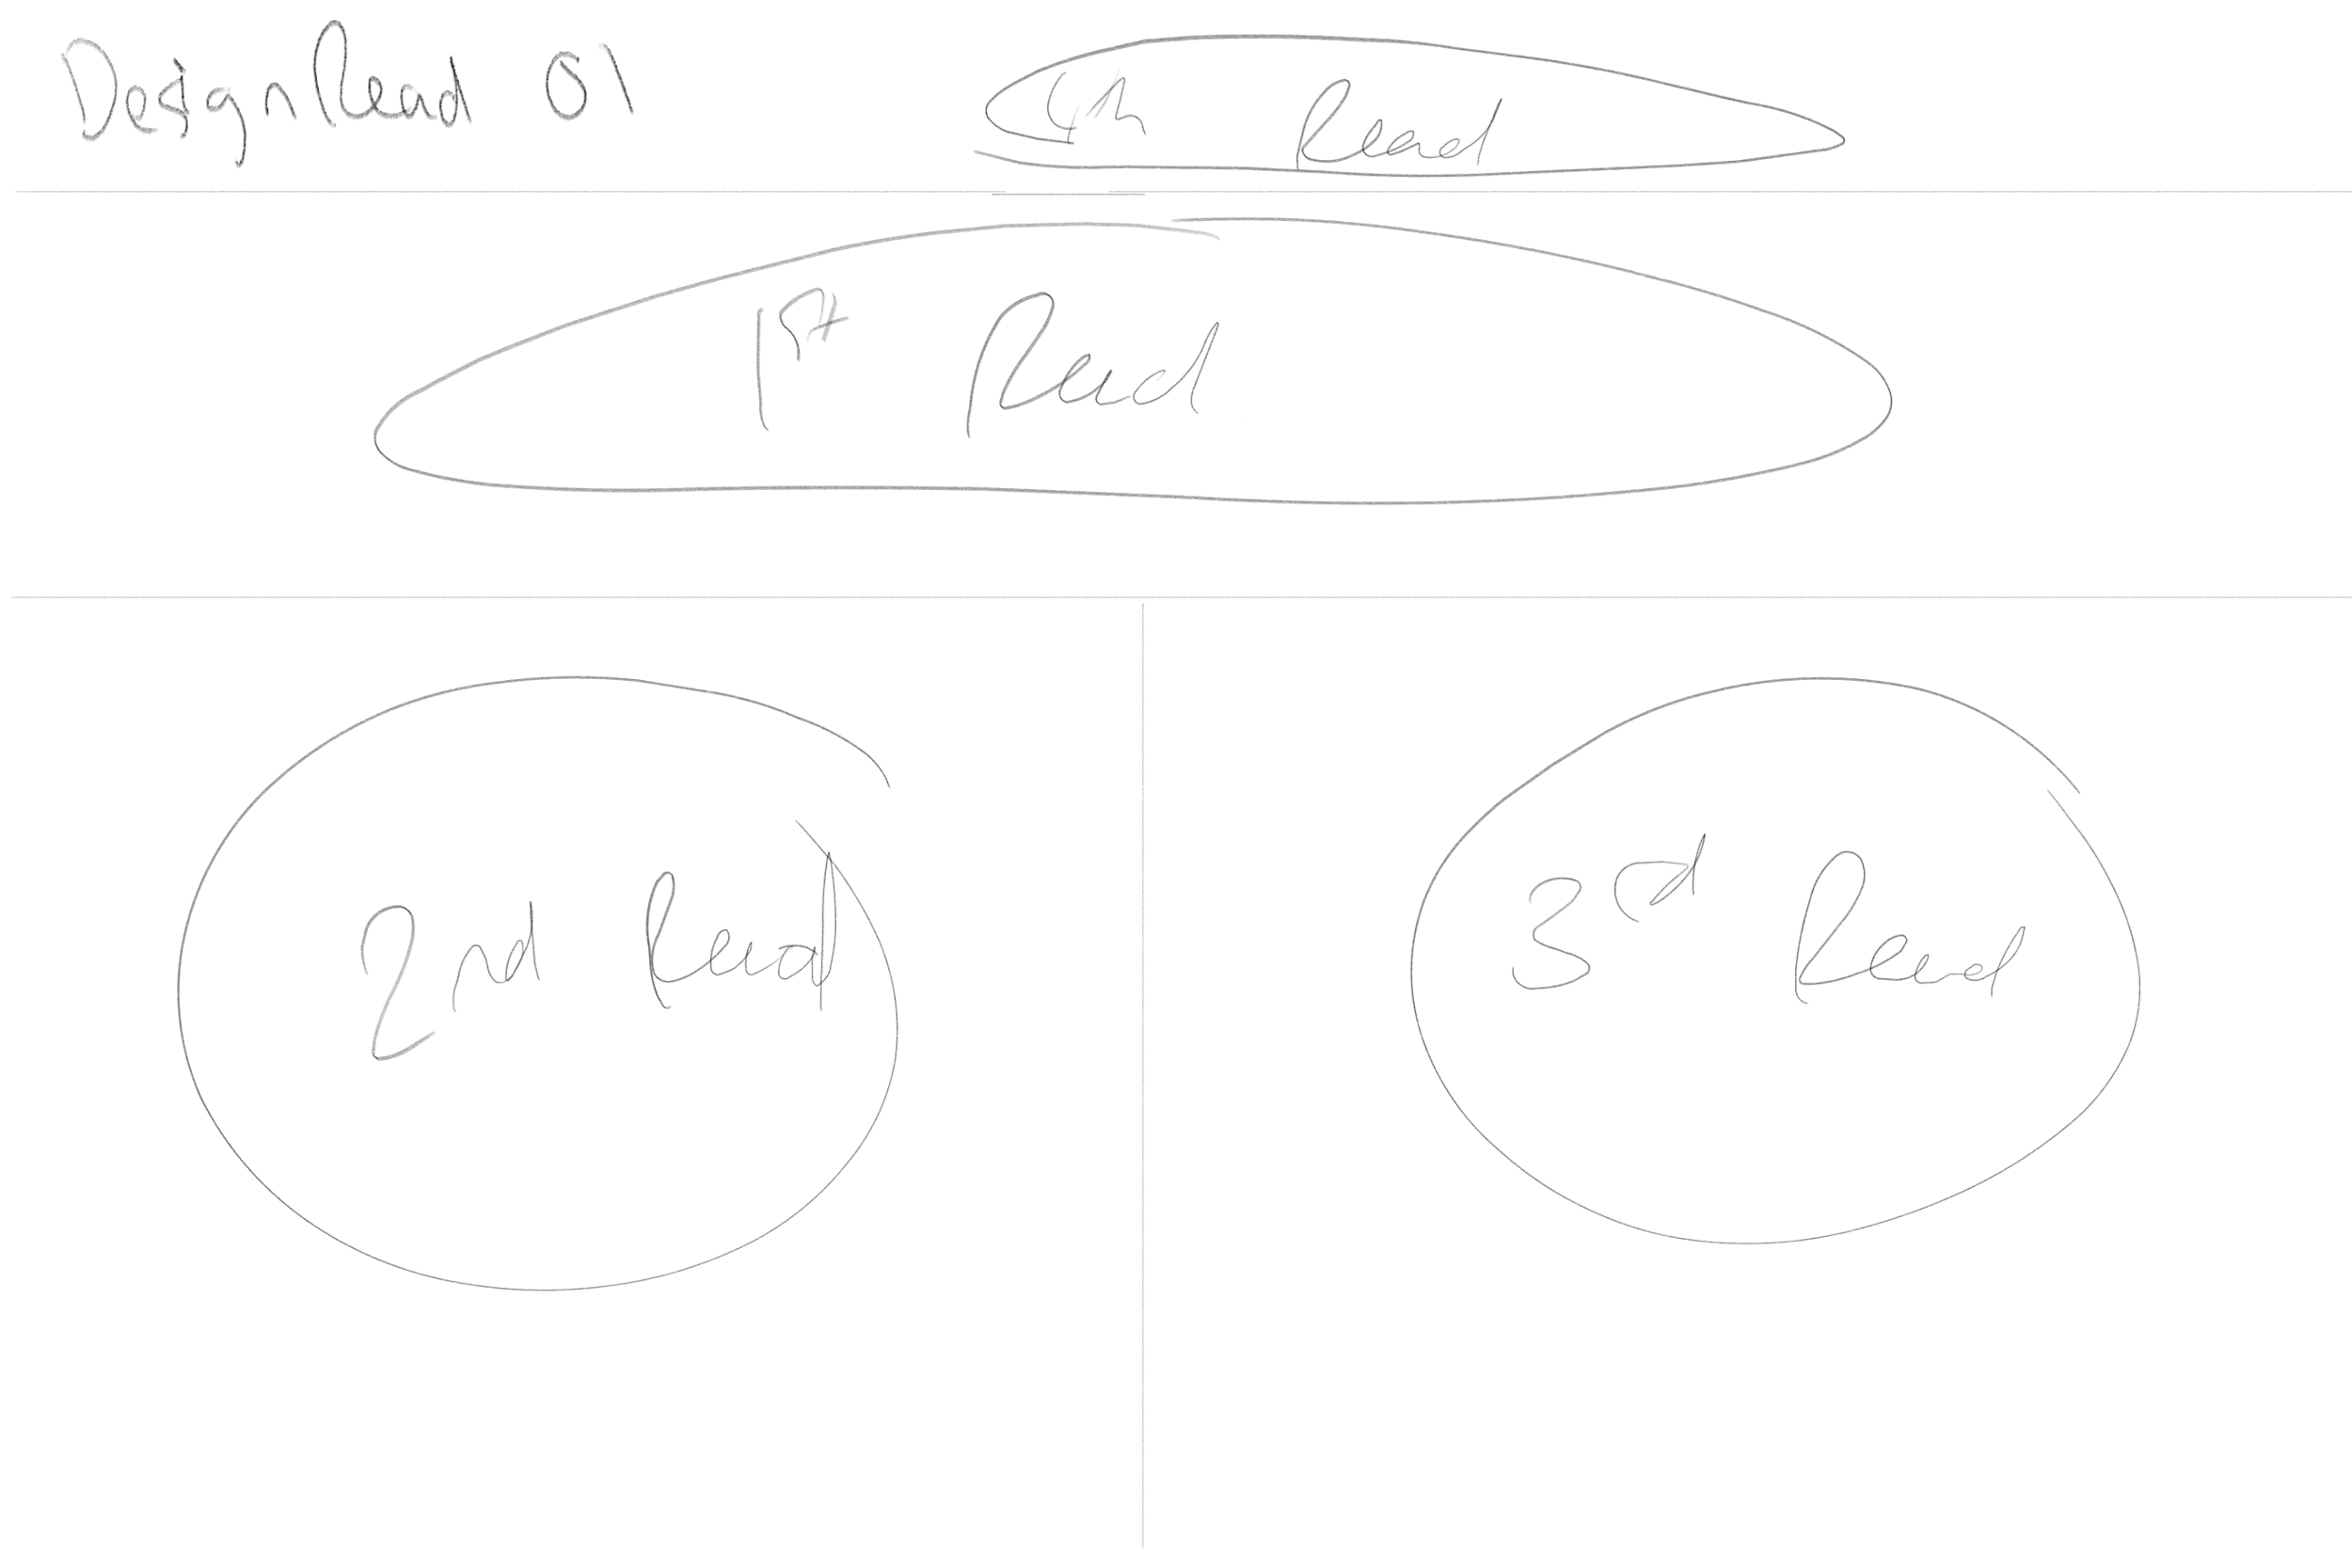 Design Read 01
4th Read
1st Read
2nd Read
3rd Read